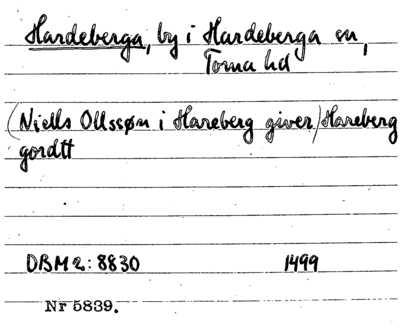 Hardeberga, by i Hardeberga sn,
Torna hd
(Niells Ollssøn i Hareberg giver) Hareberg
gordtt
DBM 2: 8830 1499
Nr 5839.